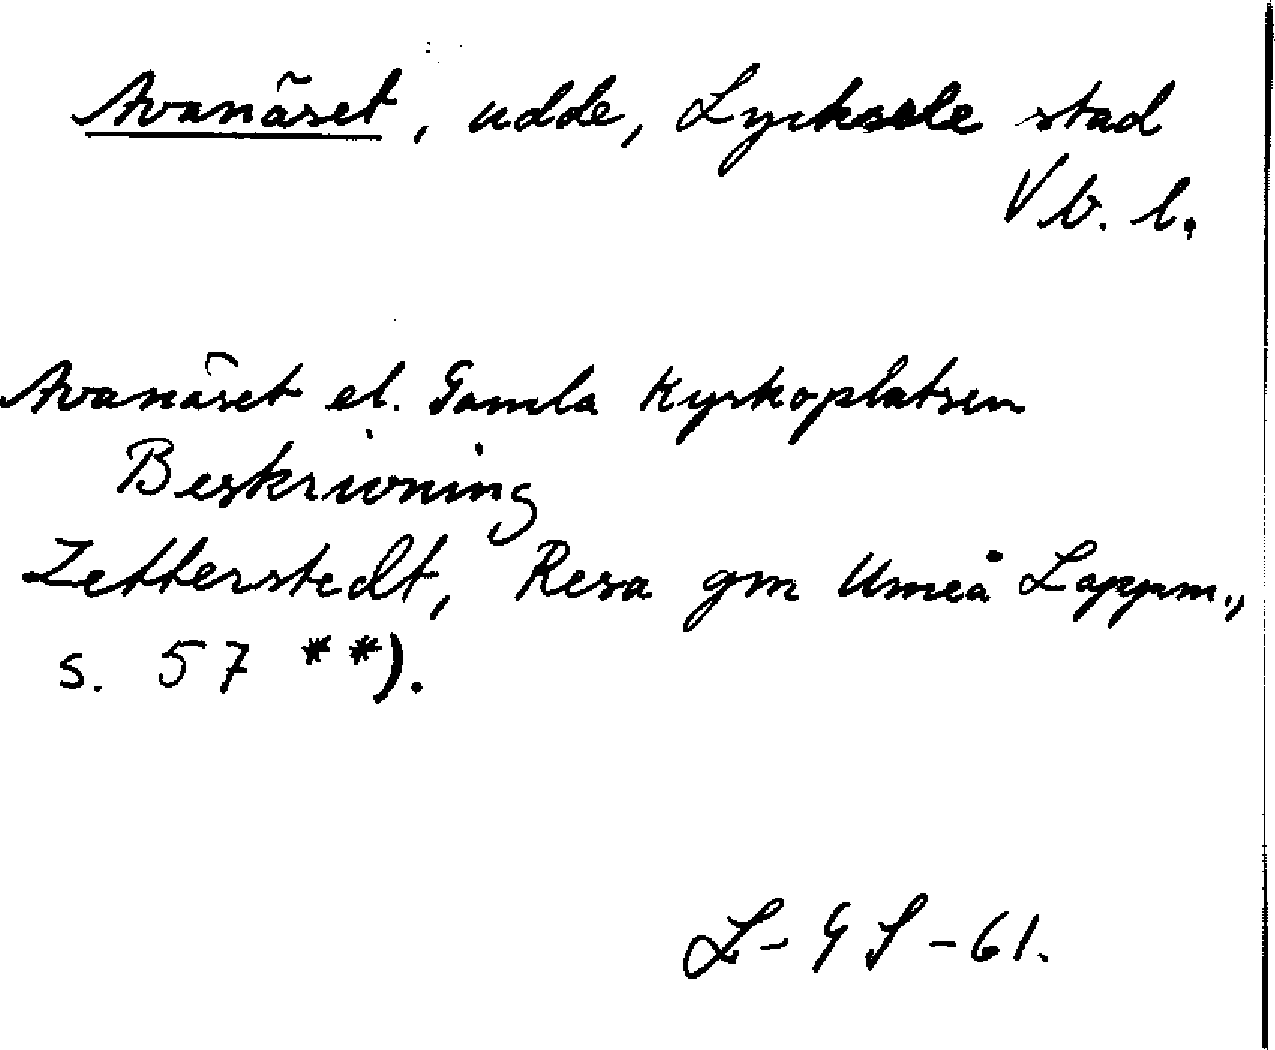 Avanäset, udde, Lycksele stad
Vb. l.
Avanäset el. Gamla Kyrkoplatsen
Beskrivning
Zetterstedt, Resa gm Umeå Lappm.,
s. 57 **).
L-GS-61.